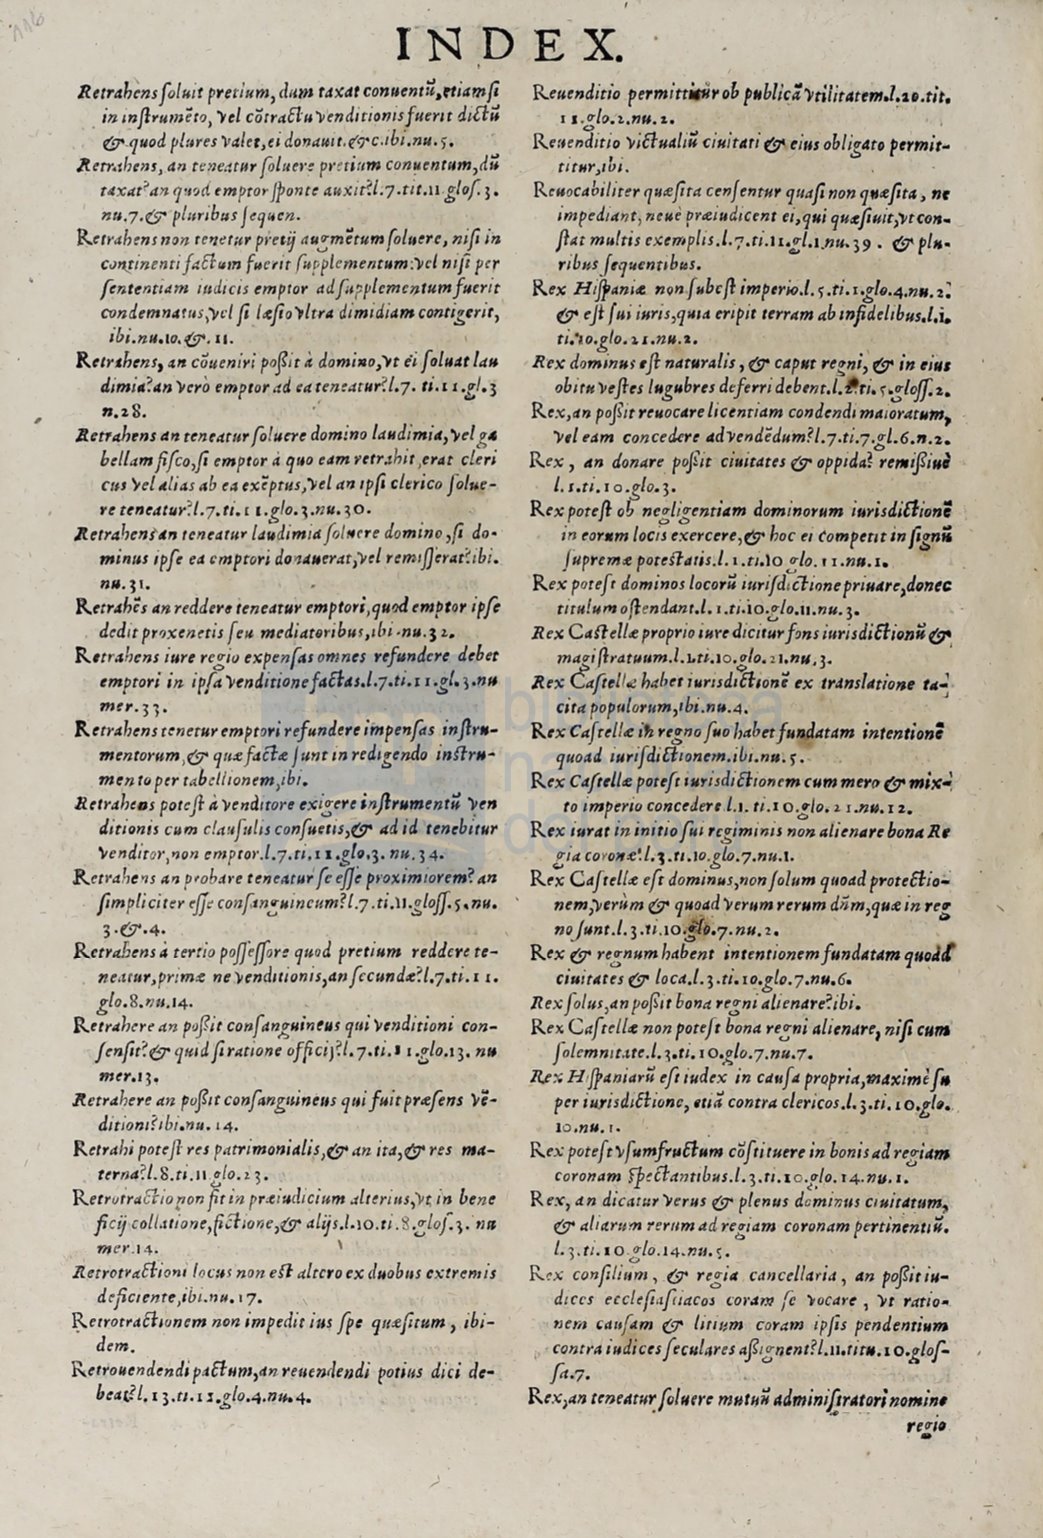 INDEX.
Retrahens soluit pretium, dum taxat conuentũ, etiam si
in instrumẽto, vel cõtractu venditionis fuerit dictũ
& quod plures valet, ei donauit. &c. ibi. nu. 5.
Retrahens, an teneatur soluere pretium conuentum, dũ
taxat? an quod emptor sponte auxit? l. 7. tit. 11 glos. 3.
nu. 7. & pluribus sequen.
Retrahens non tenetur pretij augmẽtum soluere, nisi in
continenti factum fuerit supplementum: vel nisi per
sententiam iudicis emptor ad supplementum fuerit
condemnatus, vel si læsio vltra dimidiam contigerit,
ibi. nu. 10. &. 11.
Retrahens, an cõueniri poßit à domino, vt ei soluat lau
dimia? an verò emptor ad ea teneatur? l. 7. ti. 11. gl. 3
n. 28.
Retrahens an teneatur soluere domino laudimia, vel ga
bellam fisco, si emptor à quo eam retrahit, erat cleri
cus vel alias ab ea exẽptus, vel an ipsi clerico solue-
re teneatur? l. 7. ti. 11. glo. 3. nu. 30.
Retrahens an teneatur laudimia soluere domino, si do-
minus ipse ea emptori donauerat, vel remisserat? ibi.
nu. 31.
Retrahẽs an reddere teneatur emptori, quod emptor ipse
dedit proxenetis seu mediatoribus, ibi. nu. 32.
Retrahens iure regio expensas omnes refundere debet
emptori in ipsa venditione factas. l. 7. ti. 11. gl. 3. nu
mer. 33.
Retrahens tenetur emptori refundere impensas instru-
mentorum, & quæ factæ sunt in redigendo instru-
mento per tabellionem, ibi.
Retrahens potest à venditore exigere instrumentũ ven
ditionis cum clausulis consuetis, & ad id tenebitur
venditor, non emptor. l. 7. ti. 11. glo. 3. nu. 34.
Retrahens an probare teneatur se esse proximiorem? an
simpliciter esse consanguineum? l. 7. ti. 11. gloss. 5. nu.
3. &. 4.
Retrahens à tertio possessore quod pretium reddere te-
neatur, primæ ne venditionis, an secundæ? l. 7. ti. 11.
glo. 8. nu. 14.
Retrahere an poßit consanguineus qui venditioni con-
sensit? & quid si ratione officij? l. 7. ti. 11. glo. 13. nu
mer. 13.
Retrahere an poßit consanguineus qui fuit præsens vẽ-
ditioni? ibi. nu. 14.
Retrahi potest res patrimonialis, & an ita, & res ma-
terna? l. 8. ti. 11 glo. 23.
Retrotractio non fit in præiudicium alterius, vt in bene
ficij collatione, fictione, & alijs. l. 10. ti. 8. glos. 3. nu
mer. 14.
Retrotractioni locus non est altero ex duobus extremis
deficiente, ibi. nu. 17.
Retrotractionem non impedit ius spe quæsitum, ibi-
dem.
Retrouendendi pactum, an reuendendi potius dici de-
beat? l. 13. ti. 11. glo. 4. nu. 4.
Reuenditio permittitur ob publicã vtilitatem. l. 20. tit.
11. glo. 2. nu. 2.
Reuenditio victualiũ ciuitati & eius obligato permit-
titur, ibi.
Reuocabiliter quæsita censentur quasi non quæsita, ne
impediant, neue præiudicent ei, qui quæsiuit, vt con-
stat multis exemplis. l. 7. ti. 11. gl. 1. nu. 39. & plu-
ribus sequentibus.
Rex Hispaniæ non subest imperio. l. 5. ti. 1. glo. 4. nu. 2.
& est sui iuris, quia eripit terram ab infidelibus. l. 1.
ti. 10. glo. 21. nu. 2.
Rex dominus est naturalis, & caput regni, & in eius
obitu vestes lugubres deferri debent. l. 2. ti. 5. gloss. 2.
Rex, an poßit reuocare licentiam condendi maioratum,
vel eam concedere ad vendẽdum? l. 7. ti. 7. gl. 6. n. 2.
Rex, an donare poßit ciuitates & oppida? remißiuè
l. 1. ti. 10. glo. 3.
Rex potest ob negligentiam dominorum iurisdictionẽ
in eorum locis exercere, & hoc ei competit in signũ
supremæ potestatis. l. 1. ti. 10 glo. 11. nu. 1.
Rex potest dominos locorũ iurisdictione priuare, donec
titulum ostendant. l. 1. ti. 10. glo. 11. nu. 3.
Rex Castellæ proprio iure dicitur fons iurisdictionũ &
magistratuum. l. 1. ti. 10. glo. 21. nu. 3.
Rex Castellæ habet iurisdictionẽ ex translatione ta-
cita populorum, ibi. nu. 4.
Rex Castellæ in regno suo habet fundatam intentionẽ
quoad iurisdictionem. ibi. nu. 5.
Rex Castellæ potest iurisdictionem cum mero & mix-
to imperio concedere l. 1. ti. 10. glo. 21. nu. 12.
Rex iurat in initio sui regiminis non alienare bona Re
gia coronæ. l. 3. ti. 10. glo. 7. nu. 1.
Rex Castellæ est dominus, non solum quoad protectio-
nem, verùm & quoad verum rerum dũm, quæ in reg
no sunt. l. 3. ti. 10. glo. 7. nu. 2.
Rex & regnum habent intentionem fundatam quoad
ciuitates & loca. l. 3. ti. 10. glo. 7. nu. 6.
Rex solus, an poßit bona regni alienare? ibi.
Rex Castellæ non potest bona regni alienare, nisi cum
solemnitate. l. 3. ti. 10. glo. 7. nu. 7.
Rex Hispaniarũ est iudex in causa propria, maximè su
per iurisdictione, etiã contra clericos. l. 3. ti. 10. glo.
10. nu. 1.
Rex potest vsumfructum cõstituere in bonis ad regiam
coronam spectantibus. l. 3. ti. 10. glo. 14. nu. 1.
Rex, an dicatur verus & plenus dominus ciuitatum,
& aliarum rerum ad regiam coronam pertinentiũ.
l. 3. ti. 10 glo. 14. nu. 5.
Rex consilium, & regia cancellaria, an poßit iu-
dices ecclesiasticos coram se vocare, vt ratio-
nem causam & litium coram ipsis pendentium
contra iudices seculares aßignent? l. 11. titu. 10. glos-
sa. 7.
Rex, an teneatur soluere mutuũ administratori nomine
regio